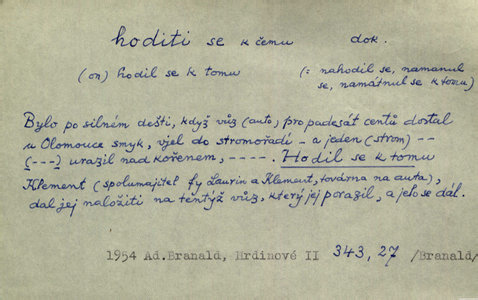 hoditi se k čemu dok.
(on) hodil se k tomu (: nahodil se, namanul
se, namátnul se k tomu)
Bylo po silném dešti, když vůz (auto) pro padesát centů dostal
u Olomouce smyk, vjel do stromořadí – a jeden (strom) --
(---) urazil nad kořenem, ----. Hodil se k tomu
Klement (spolumajitel fy Laurin a Klement, továrna na auta),
dal jej naložiti na tentýž vůz, který jej porazil, a jelo se dál.
1954 Ad.Branald, Hrdinové II 343, 27 /Branald/